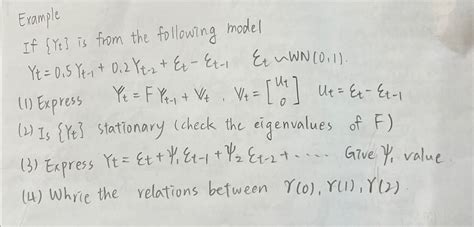 Example
If {Yt} is from the following model
Yt = 0.5 Yt-1 + 0.2 Yt-2 + Et - Et-1   Et ~ WN(0,1).
(1) Express   Yt = F Yt-1 + Vt, Vt = [Ut 0]   Ut = Et - Et-1
(2) Is {Yt} stationary (check the eigenvalues of F)
(3) Express Yt = Et + Ψ1 Et-1 + Ψ2 Et-2 + ..... Give Ψ1 value
(4) Whrie the relations between γ(0), γ(1), γ(2).